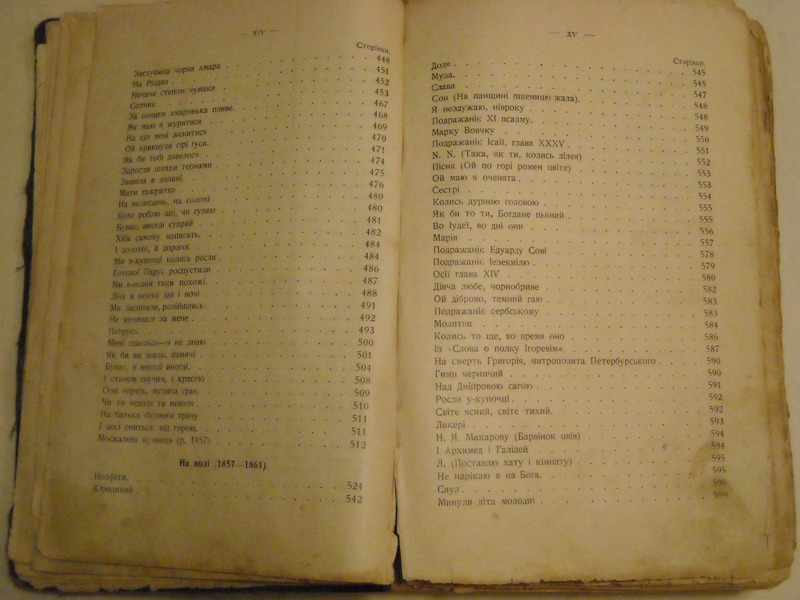 — XIV —
Сторінки.
Виступила чорна хмара 448
На Різдво 451
Неначе степом чумаки 452
Сотник 453
За сонцем хмаронька пливе. 467
Як маю я журитися 468
На що мені женитися 469
Ой крикнули сірі гуси. 470
Як би тобі довелося 471
Заросли шляхи тернами 474
Зацвіла в долині 475
Мати покритка 476
На великдень, на соломі 480
Було роблю що, чи гуляю 480
Буває, иногді старий 481
Хіба самому написать. 482
І золотої, й дорогої 484
Ми в-купочці колись росли 484
Готово! Парус розпустили 486
Ми в-осени таки похожі. 487
Лічу в неволі дні і ночі 488
Ми заспівали, розійшлись. 491
Не молилася за мене 492
Петрусь. 493
Мені здається—я не знаю 500
Як би ви знали, паничі 501
Буває, в неволі иногді. 504
І станом гнучим, і красою 508
Огні горять, музика грає. 509
Чи то недоля та неволя 510
На батька бісового трачу 511
І досі сниться: під горою. 511
Москалева криниця (р. 1857) 512
На волі (1857—1861)
Неофіти. 524
Юродивий 542
— XV —
Сторінки.
Доля 545
Муза. 545
Слава 547
Сон (На панщині пшеницю жала). 548
Я нездужаю, нівроку 548
Подражаніє XI псалму. 549
Марку Вовчку 550
Подражаніє Ісаії, глава XXXV 551
N. N. (Така, як ти, колись лілея) 552
Пісня (Ой по горі ромен цвіте) 553
Ой маю я оченята 553
Сестрі 554
Колись дурною головою 555
Як би то ти, Богдане пьяний 555
Во Іудеї, во дні они 556
Марія 557
Подражаніє Едуарду Сові 578
Подражаніє Іезекиїлю 579
Осії глава XIV 580
Дівча любе, чорнобриве 582
Ой діброво, темний гаю 583
Подражаніє сербському 583
Молитви 584
Колись то ще, во время оно 586
Із »Слова о полку Ігоревім« 587
На смерть Григорія, митрополита Петербурського 590
Гимн черничий 590
Над Дніпровою сагою 591
Росли у-купочці 592
Світе ясний, світе тихий. 592
Ликері 593
Н. Я. Макарову (Барвінок цвів) 594
І Архимед і Галілей 594
Л. (Поставлю хату і кімнату) 595
Не нарікаю я на Бога. 595
Саул 596
Минули літа молодиї 599